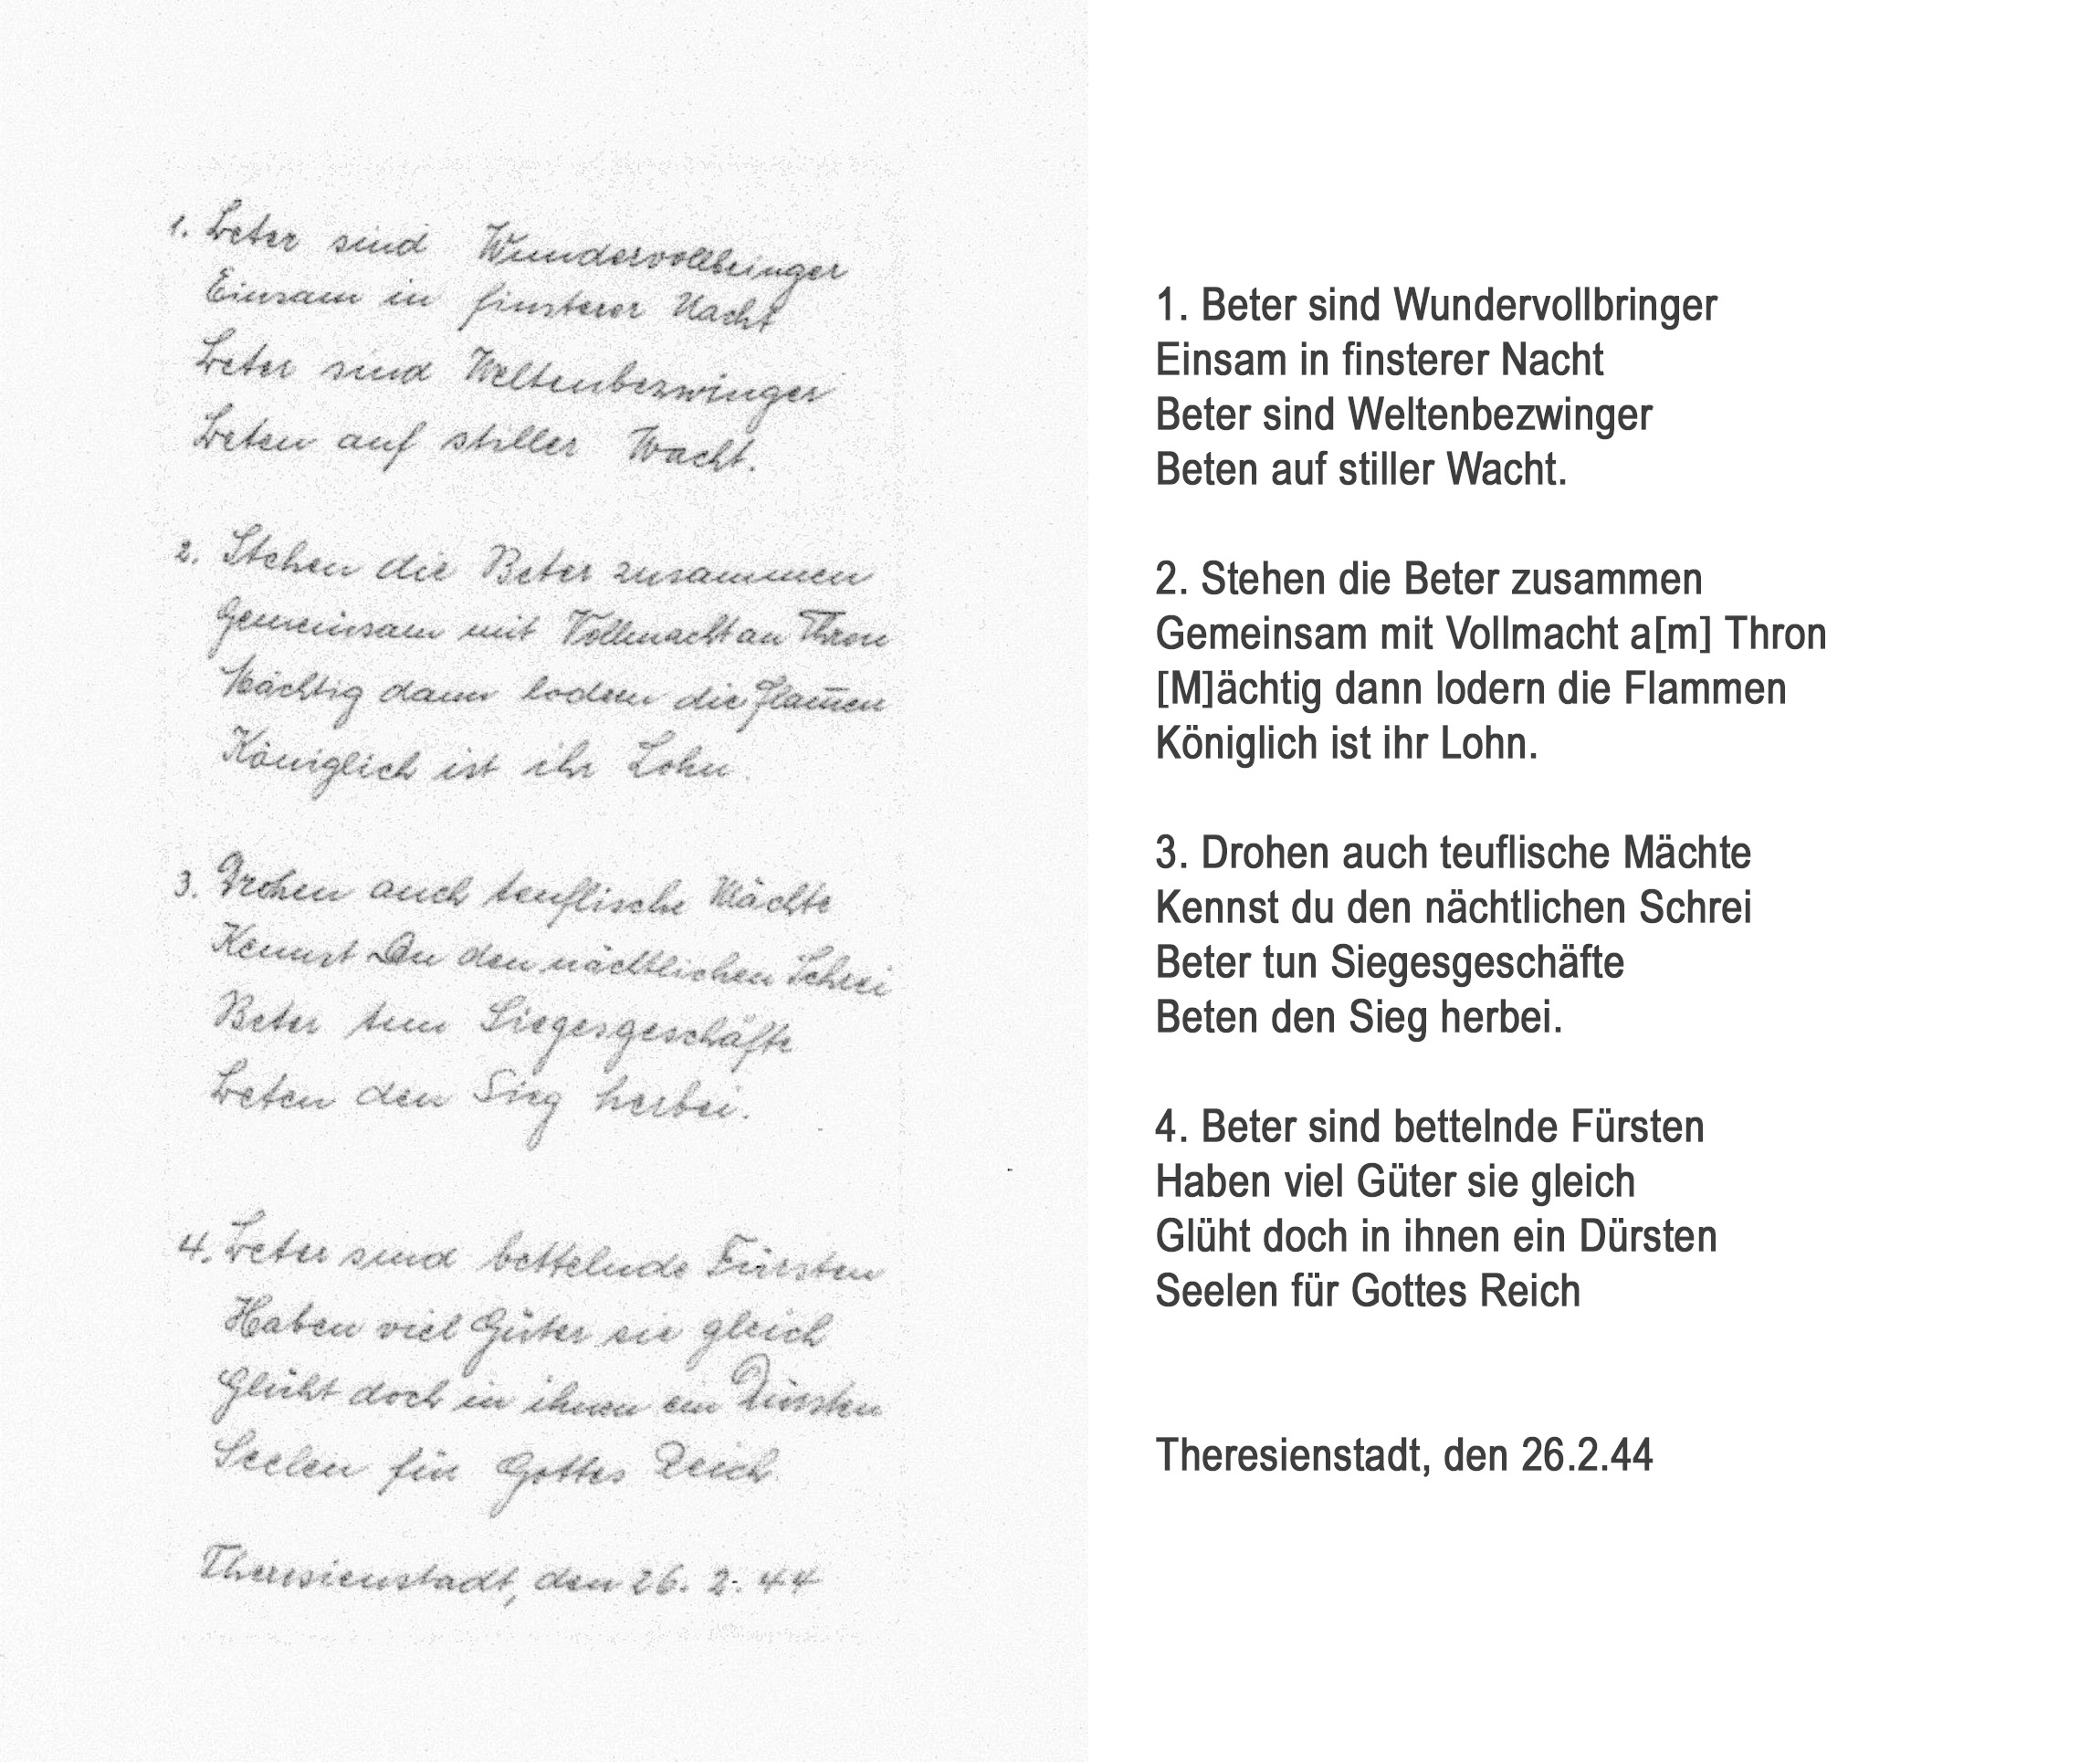 1. Beter sind Wundervollbringer
Einsam in finsterer Nacht
Beter sind Weltenbezwinger
Beten auf stiller Wacht.
2. Stehen die Beter zusammen
Gemeinsam mit Vollmacht an Thron
Mächtig dann lodern die Flam̅en
Königlich ist ihr Lohn.
3. Drohen auch teuflische Mächte
Kennst Du den nächtlichen Schrei
Beter tun Siegesgeschäfte
Beten den Sieg herbei.
4. Beter sind bettelnde Fürsten
Haben viel Güter sie gleich
Glüht doch in ihnen ein Dürsten
Seelen für Gottes Reich.
Theresienstadt, den 26. 2. 44
1. Beter sind Wundervollbringer
Einsam in finsterer Nacht
Beter sind Weltenbezwinger
Beten auf stiller Wacht.
2. Stehen die Beter zusammen
Gemeinsam mit Vollmacht a[m] Thron
[M]ächtig dann lodern die Flammen
Königlich ist ihr Lohn.
3. Drohen auch teuflische Mächte
Kennst du den nächtlichen Schrei
Beter tun Siegesgeschäfte
Beten den Sieg herbei.
4. Beter sind bettelnde Fürsten
Haben viel Güter sie gleich
Glüht doch in ihnen ein Dürsten
Seelen für Gottes Reich
Theresienstadt, den 26.2.44